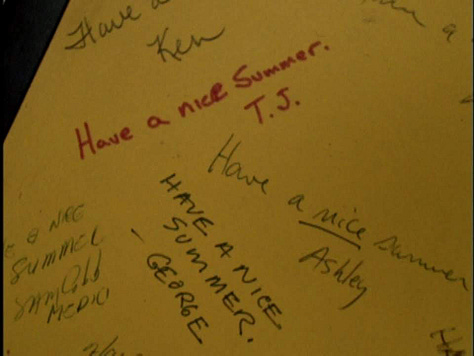 Have a
Ken
a
Have a nice Summer.
T.J.
Have a nice summer
Ashley
HAVE A NICE
SUMMER.
- GEORGE
& NICE
SUMMER